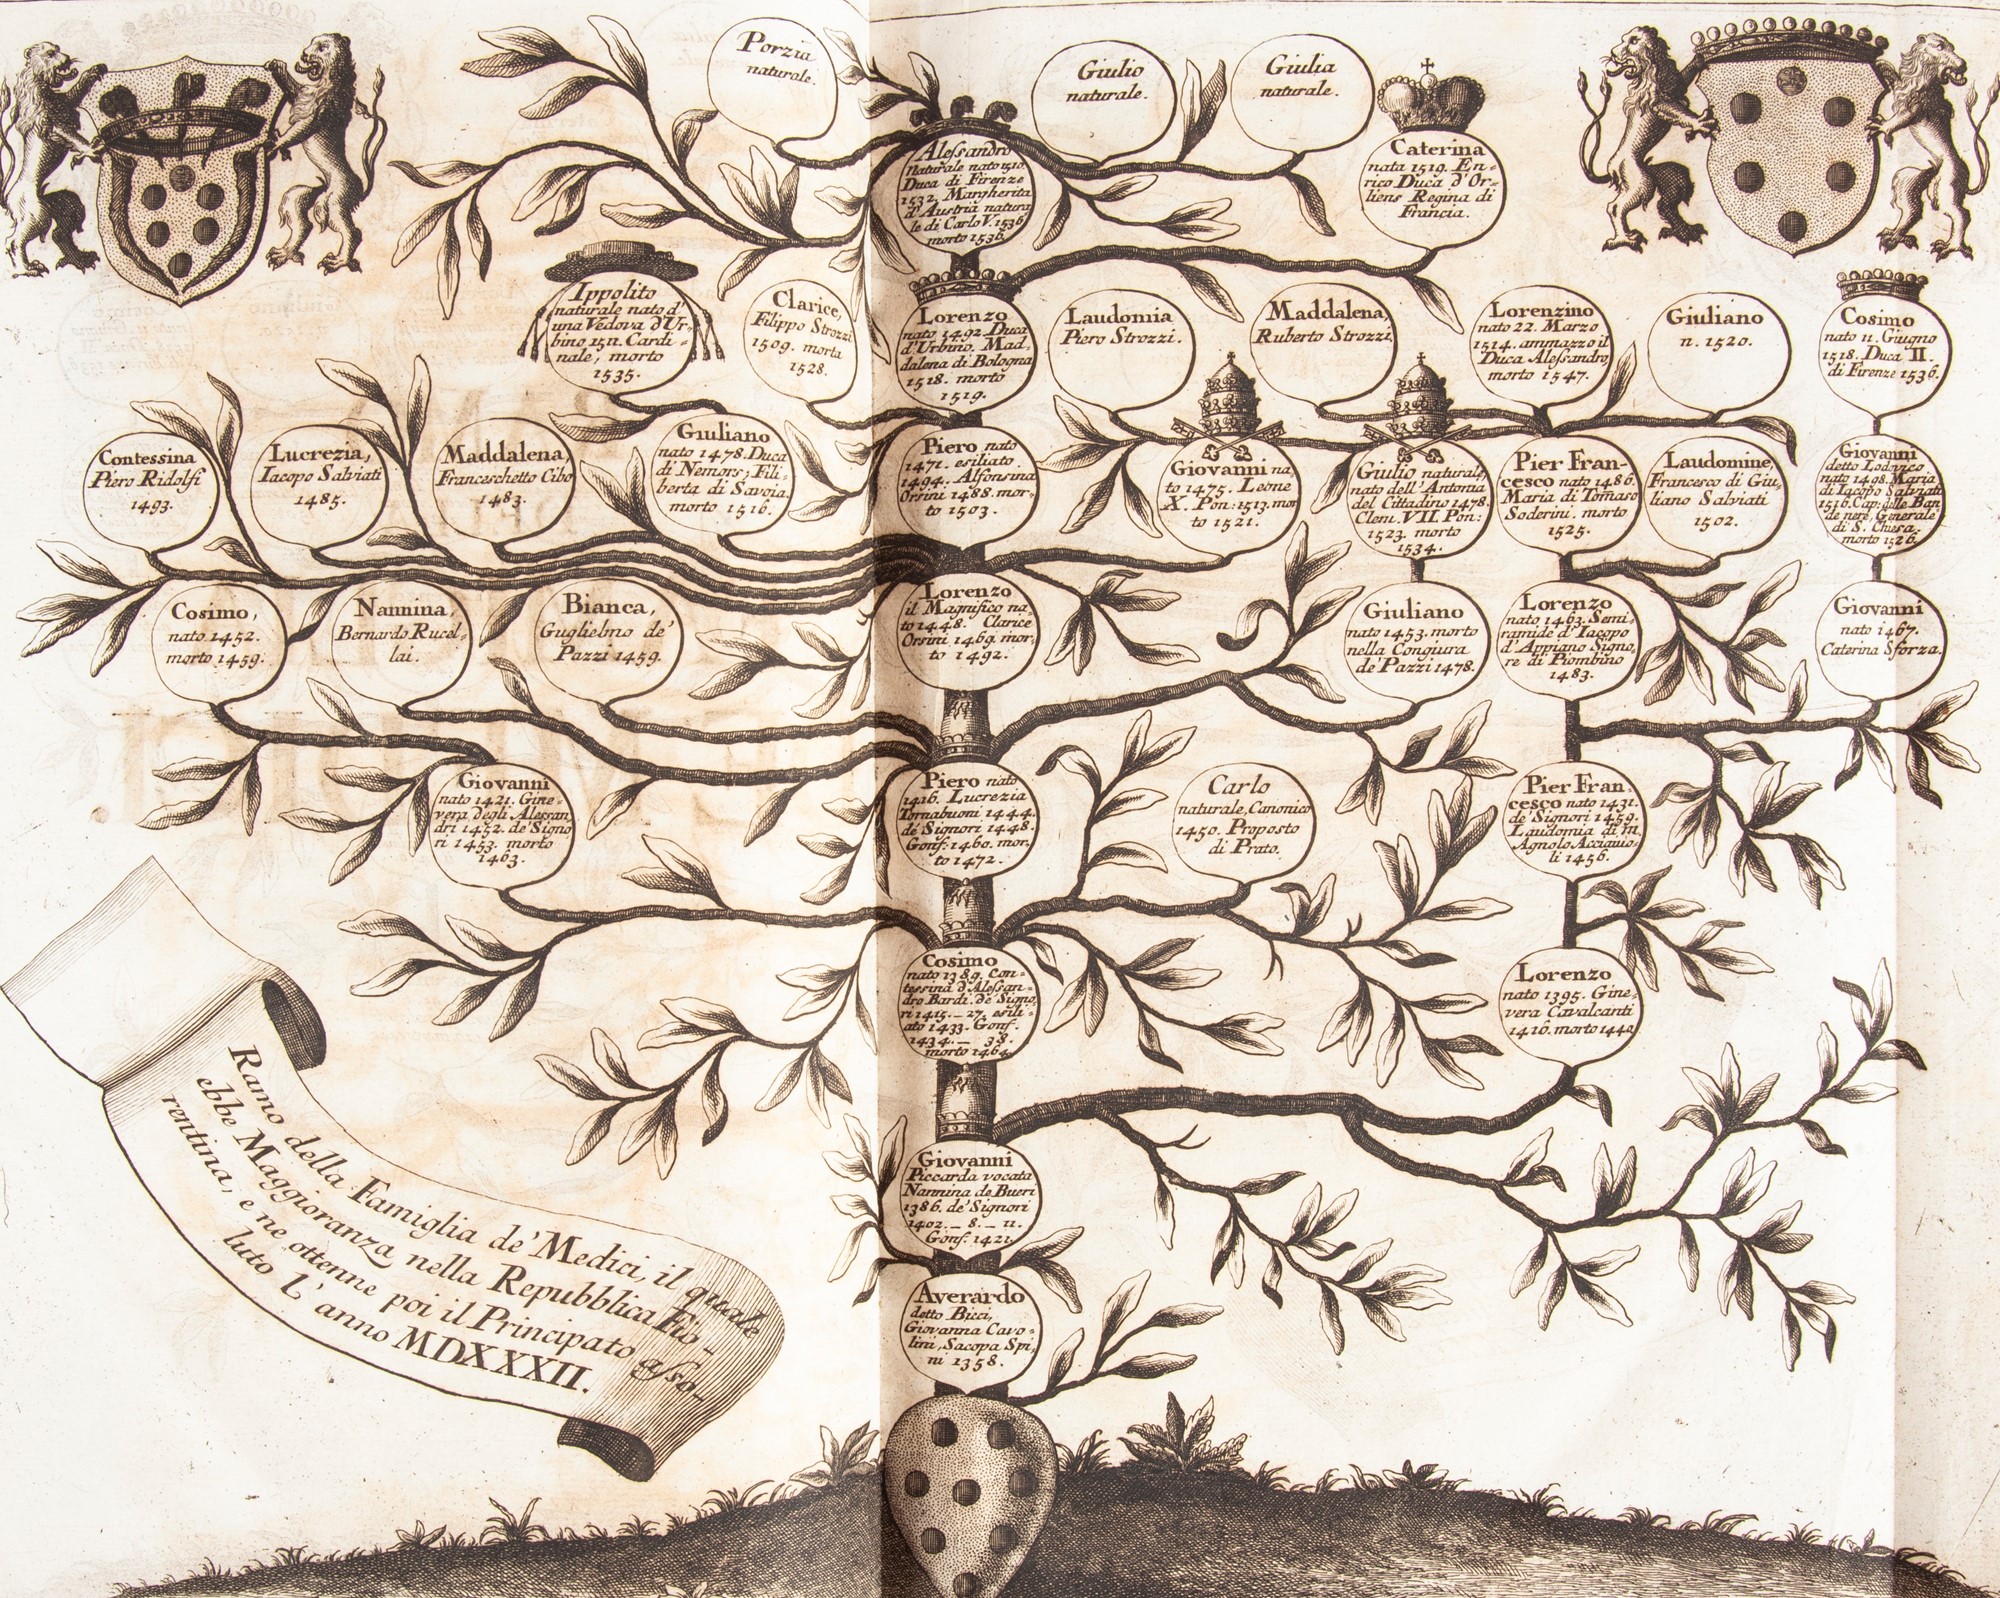 Porzia
naturale.
Giulio
naturale.
Giulia
naturale.
Alessandro
Naturale nato 1510
Duca di Firenze
1532. Margherita
d'Austria natura
le di Carlo V. 1536
morto 1536
Caterina
nata 1519. En-
rico Duca d'Or-
liens Regina di
Francia.
Ippolito
naturale nato d'
una Vedova d'Ur-
bino 1511. Cardi-
nale, morto
1535.
Clarice,
Filippo Strozzi
1509. morta
1528.
Lorenzo
nato 1492. Duca
d'Urbino. Mad-
dalena di Bologna
1518. morto
1519.
Laudomia
Piero Strozzi.
Maddalena,
Ruberto Strozzi,
Lorenzino
nato 22. Marzo
1514. ammazzo il
Duca Alessandro,
morto 1547.
Giuliano
n. 1520.
Cosimo
nato 11. Giugno
1518. Duca II.
di Firenze 1536.
Contessina
Piero Ridolfi
1493.
Lucrezia,
Iacopo Salviati
1485.
Maddalena,
Franceschetto Cibo
1483.
Giuliano
nato 1478. Duca
di Nemors; Fili-
berta di Savoia.
morto 1516.
Piero nato
1471. esiliato
1494. Alfonsina
Orsini 1488. mor-
to 1503.
Giovanni na,
to 1475. Leone
X. Pon: 1513. mor
to 1521.
Giulio naturale,
nato dell'Antonia
del Cittadino 1478.
Clem. VII. Pon:
1523. morto
1534.
Pier Fran-
cesco nato 1486.
Maria di Tomaso
Soderini. morto
1525.
Laudomine,
Francesco di Giu,
liano Salviati
1502.
Giovanni
detto Lodovico
nato 1498. Maria
di Iacopo Salviati
1516. Cap: delle Ban
de nere, Generale
di S. Chiesa.
morto 1526.
Cosimo,
nato 1452.
morto 1459.
Nannina,
Bernardo Rucel-
lai.
Bianca,
Guglielmo de'
Pazzi 1459.
Lorenzo
il Magnifico na,
to 1448. Clarice
Orsini 1469. mor,
to 1492.
Giuliano
nato 1453. morto
nella Congiura
de' Pazzi 1478.
Lorenzo
nato 1463. Semi-
ramide d'Iacopo
d'Appiano Signo,
re di Piombino
1483.
Giovanni
nato 1467.
Caterina Sforza.
Giovanni
nato 1421. Gine-
vera degli Alessan
dri 1452. de' Signo
ri 1453. morto
1463.
Piero nato
1416. Lucrezia
Tornabuoni 1444.
de' Signori 1448.
Gonf: 1460. mor,
to 1472.
Carlo
naturale, Canonico
1450. Proposto
di Prato.
Pier Fran-
cesco nato 1431.
de' Signori 1459.
Laudomia di m.
Agnolo Acciaiuo-
li 1456.
Cosimo
nato 1389. Con-
tessina d'Alessan-
dro Bardi. de' Signo,
ri 1415. - 27. esili-
ato 1433. Gonf.
1434. - 38.
morto 1464.
Lorenzo
nato 1395. Gine-
vera Cavalcanti
1416. morto 1440.
Giovanni
Piccarda vocata
Nannina de Bueri
1386. de' Signori
1402. - 8. - 11.
Gonf: 1421.
Averardo
detto Bicci,
Giovanna Cavo-
lini, Sacopa Spi,
ni 1358.
Ramo della Famiglia de' Medici, il quale
ebbe Maggioranza nella Repubblica Fio-
rentina, e ne ottenne poi il Principato asso-
luto L' anno MDXXXII.